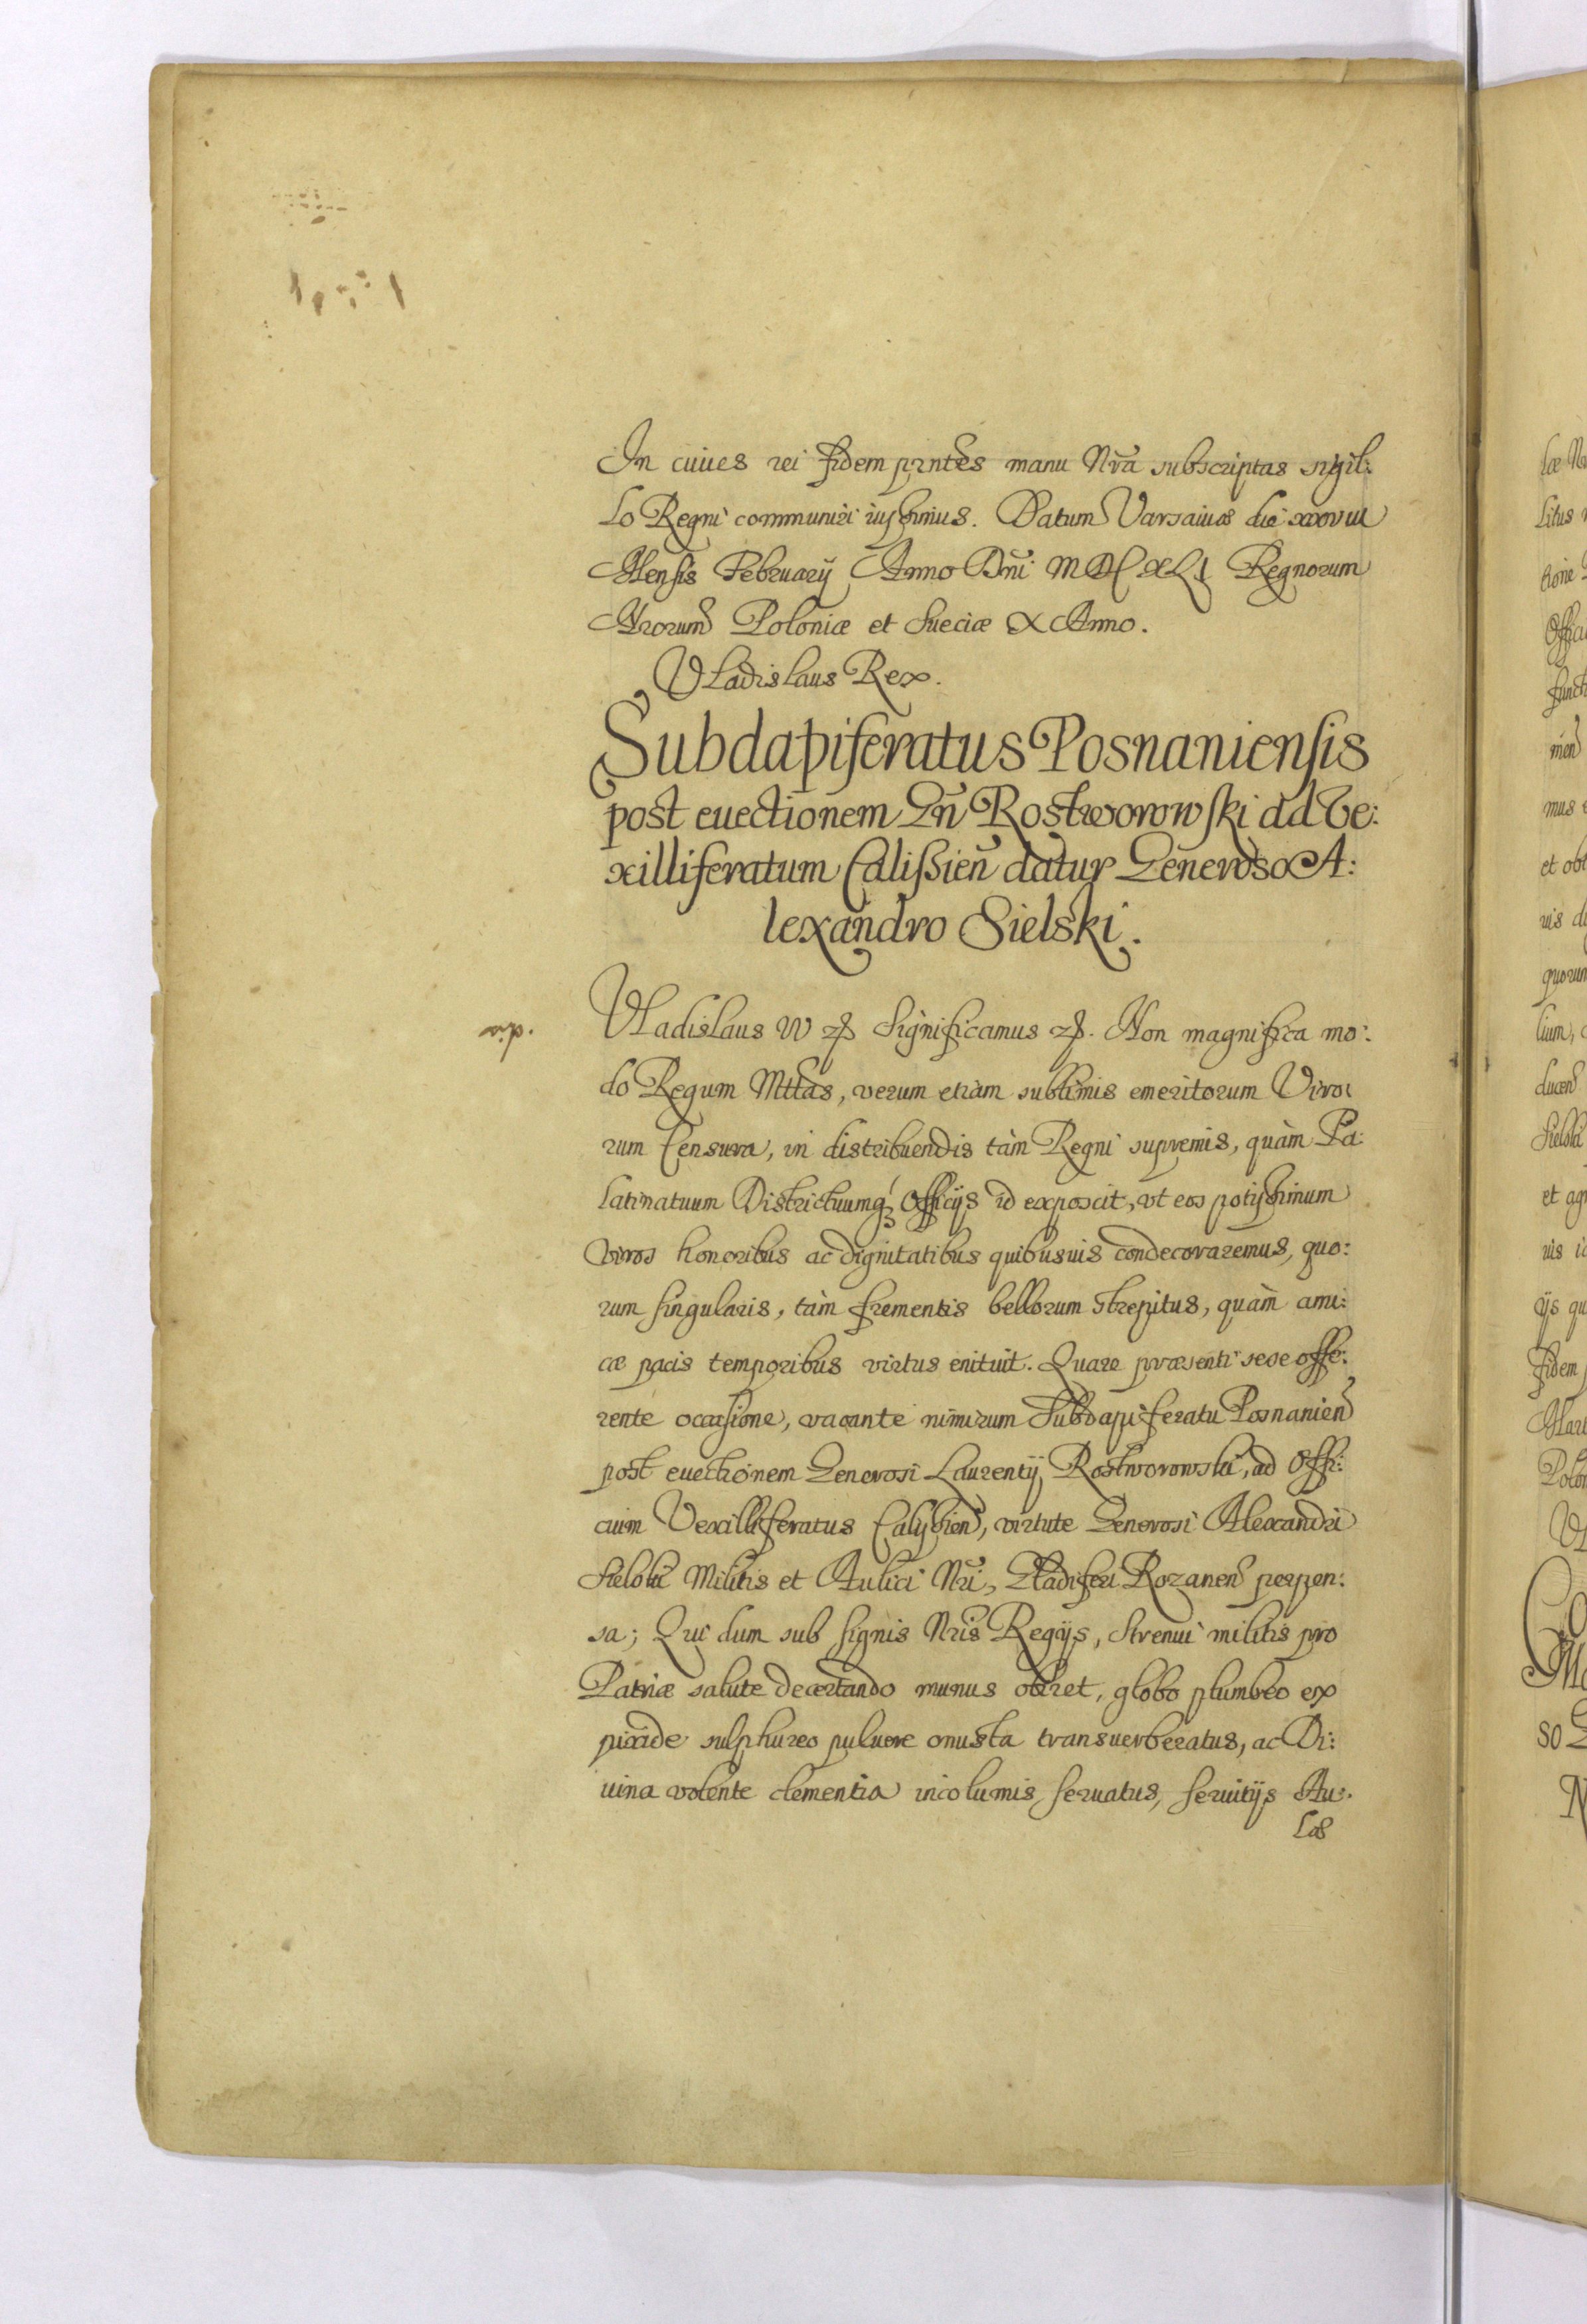 In cuius rei fidem pntes manu Nra subscriptas sigil:
lo Regni communiri iussimus. Datum Varsaviæ die xxviii
Mensis Februarij Anno Dni MDCXLI Regnorum
Nrorum Poloniæ et Sueciæ X Anno.
Vladislaus Rex.
Subdapiferatus Posnaniensis
post euectionem Gñ Rostworowski ad Ve:
xilliferatum Calissien datur Generoso A:
lexandro Sielski.
Vladislaus IV &c Significamus &c. Non magnifica mo:
do Regum Mttas, verum etiam sublimis emeritorum Viro:
rum Censura, in distribuendis tàm Regni supremis, quàm Pa:
latinatuum Districtuumq; Officijs id exposcit, vt eos potissimum
viros honoribus ac dignitatibus quibusuis condecoraremus, quo:
rum singularis, tàm frementis bellorum strepitus, quàm ami:
cæ pacis temporibus virtus enituit. Quare præsenti sese offe:
rente occasione, vacante nimirum Subdapiferatu Posnanien
post euectionem Generosi Laurentij Rostworowski, ad Offi:
cium Vexilliferatus Calissien, virtute Generosi Alexandri
Sielski Militis et Aulici Nri, Gladiferi Rozanen perpen:
sa; Qui dum sub signis Nris Regijs, strenui militis pro
Patriæ salute decertando munus obiret, globo plumbeo ex
pixide sulphureo puluere onusta transuerberatus, ac Di:
uina volente clementia incolumis seruatus, seruitijs Au:
læ